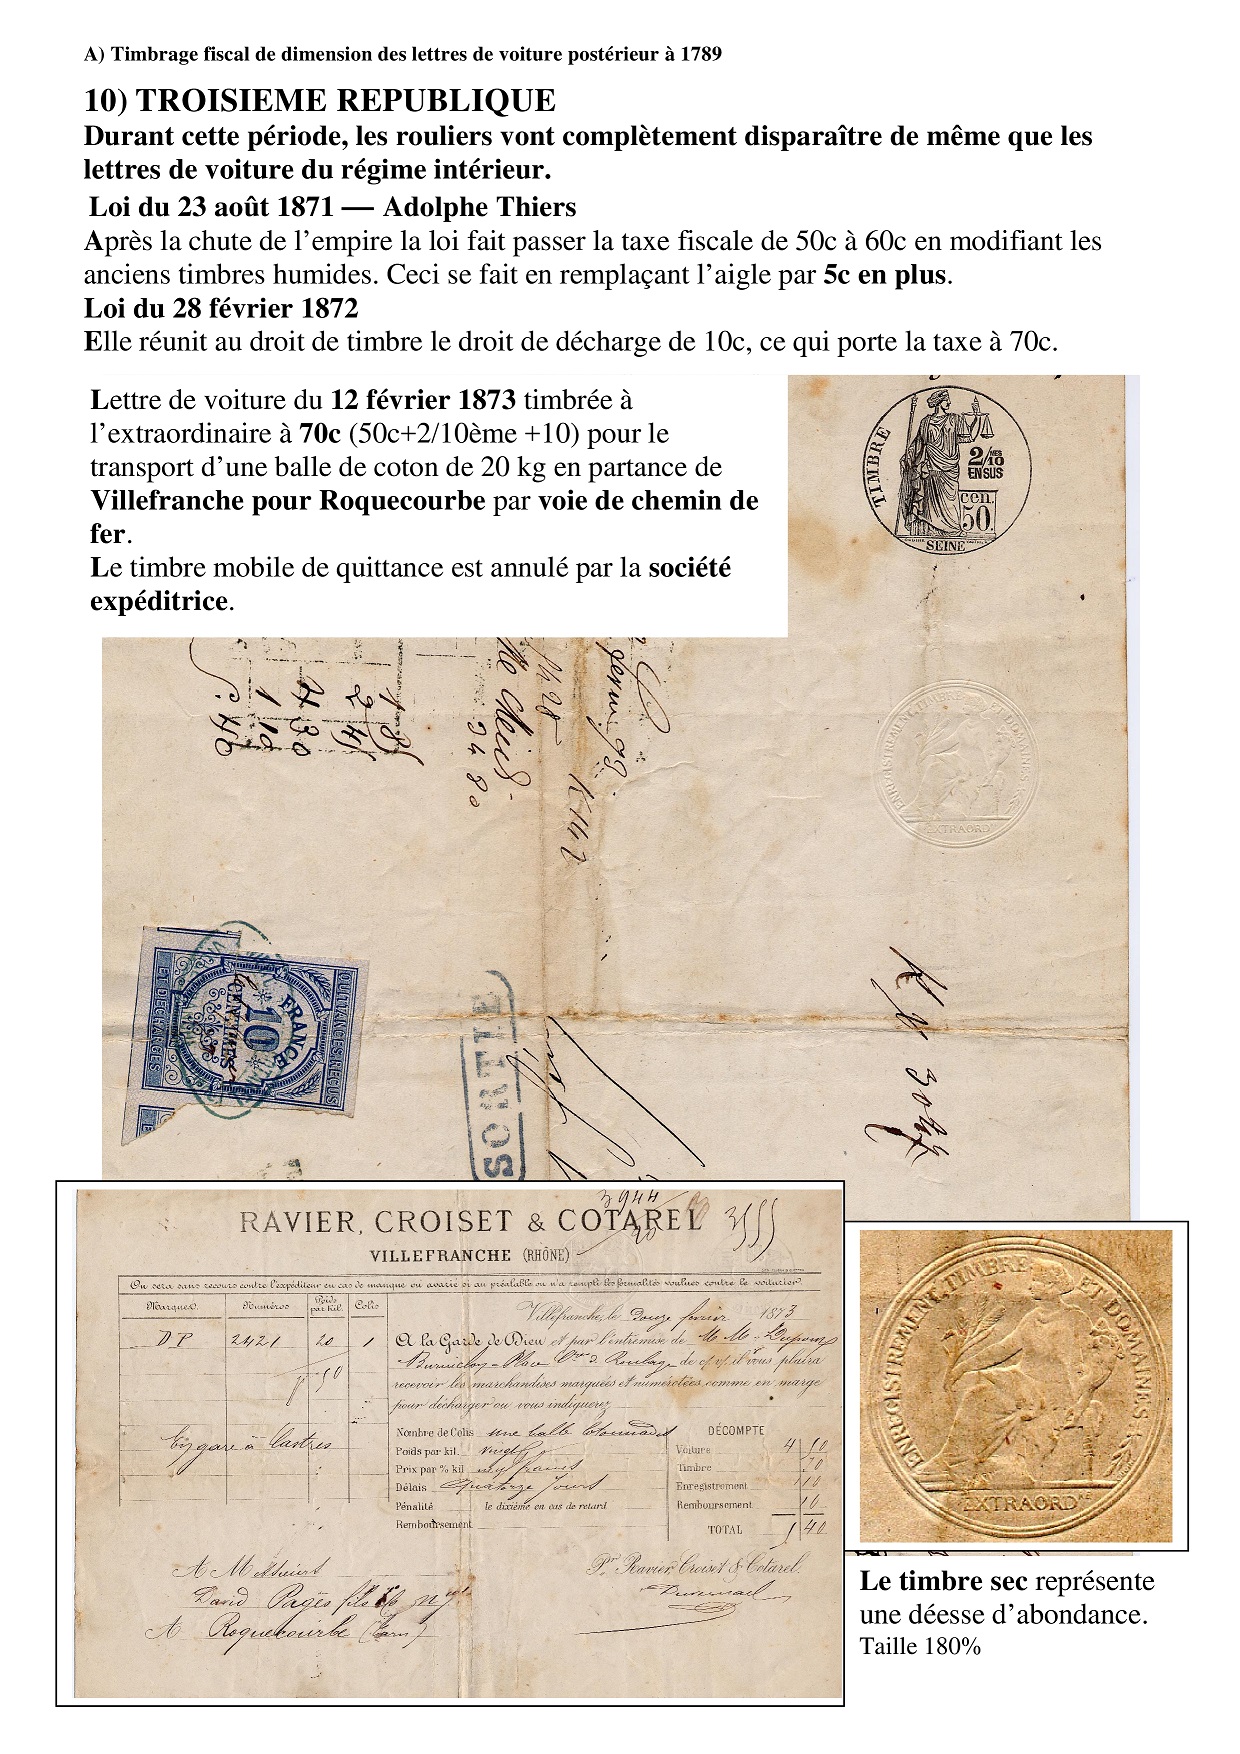 A) Timbrage fiscal de dimension des lettres de voiture postérieur à 1789
10) TROISIEME REPUBLIQUE
Durant cette période, les rouliers vont complètement disparaître de même que les
lettres de voiture du régime intérieur.
Loi du 23 août 1871 — Adolphe Thiers
Après la chute de l’empire la loi fait passer la taxe fiscale de 50c à 60c en modifiant les
anciens timbres humides. Ceci se fait en remplaçant l’aigle par 5c en plus.
Loi du 28 février 1872
Elle réunit au droit de timbre le droit de décharge de 10c, ce qui porte la taxe à 70c.
Lettre de voiture du 12 février 1873 timbrée à
l’extraordinaire à 70c (50c+2/10ème +10) pour le
transport d’une balle de coton de 20 kg en partance de
Villefranche pour Roquecourbe par voie de chemin de
fer.
Le timbre mobile de quittance est annulé par la société
expéditrice.
TIMBRE
2/10 MES
EN SUS
cen.
50.
SEINE
ENREGISTREMENT, TIMBRE ET DOMAINES
EXTRAORD
QUITTANCES, REÇUS
FRANCE
10
CENTIMES
ET DECHARGES
SORTIE
3944
RAVIER, CROISET & COTAREL
VILLEFRANCHE (RHÔNE)
On sera sans recours contre l'expéditeur en cas de manque ou avarie si au préalable on n'a rempli les formalités voulues contre le voiturier.
Marques Numéros Poids par kil. Colis
Villefranche, le Douze février 1873
D P 2421 20 1
A la Garde de Dieu et par l'entremise de M M
de il vous plaira
recevoir les marchandises marquées et numérotées comme en marge
pour décharger ou vous indiquerez
gare à Castres
Nombre de Colis une balle
Poids par kil. vingt
Prix par % kil francs
Délais Quatorze jours
Pénalité le dixième en cas de retard
Remboursement
DÉCOMPTE
Voiture 4
Timbre
Enregistrement
Remboursement
TOTAL
A Messieurs
David Pagès fils
A Roquecourbe (Tarn)
Pr Ravier, Croiset & Cotarel.
ENREGISTREMENT, TIMBRE ET DOMAINES
EXTRAORD RE
Le timbre sec représente
une déesse d’abondance.
Taille 180%